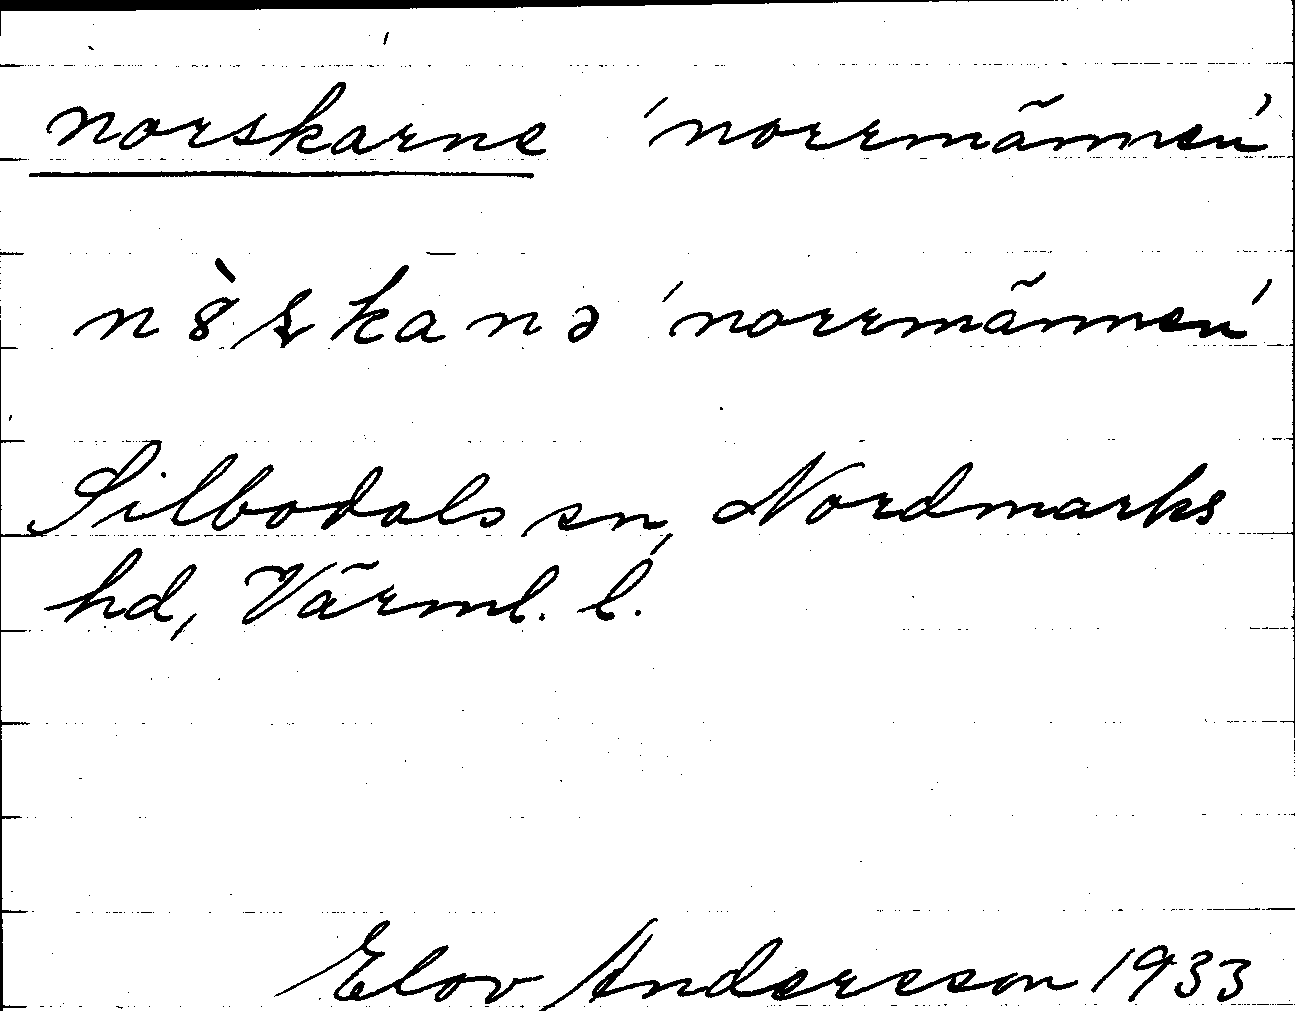 norskarne 'norrmännen'
n8̀ʂkanə 'norrmännen'
Silbodals sn, Nordmarks
hd, Värml. l.
Elov Andersson 1933